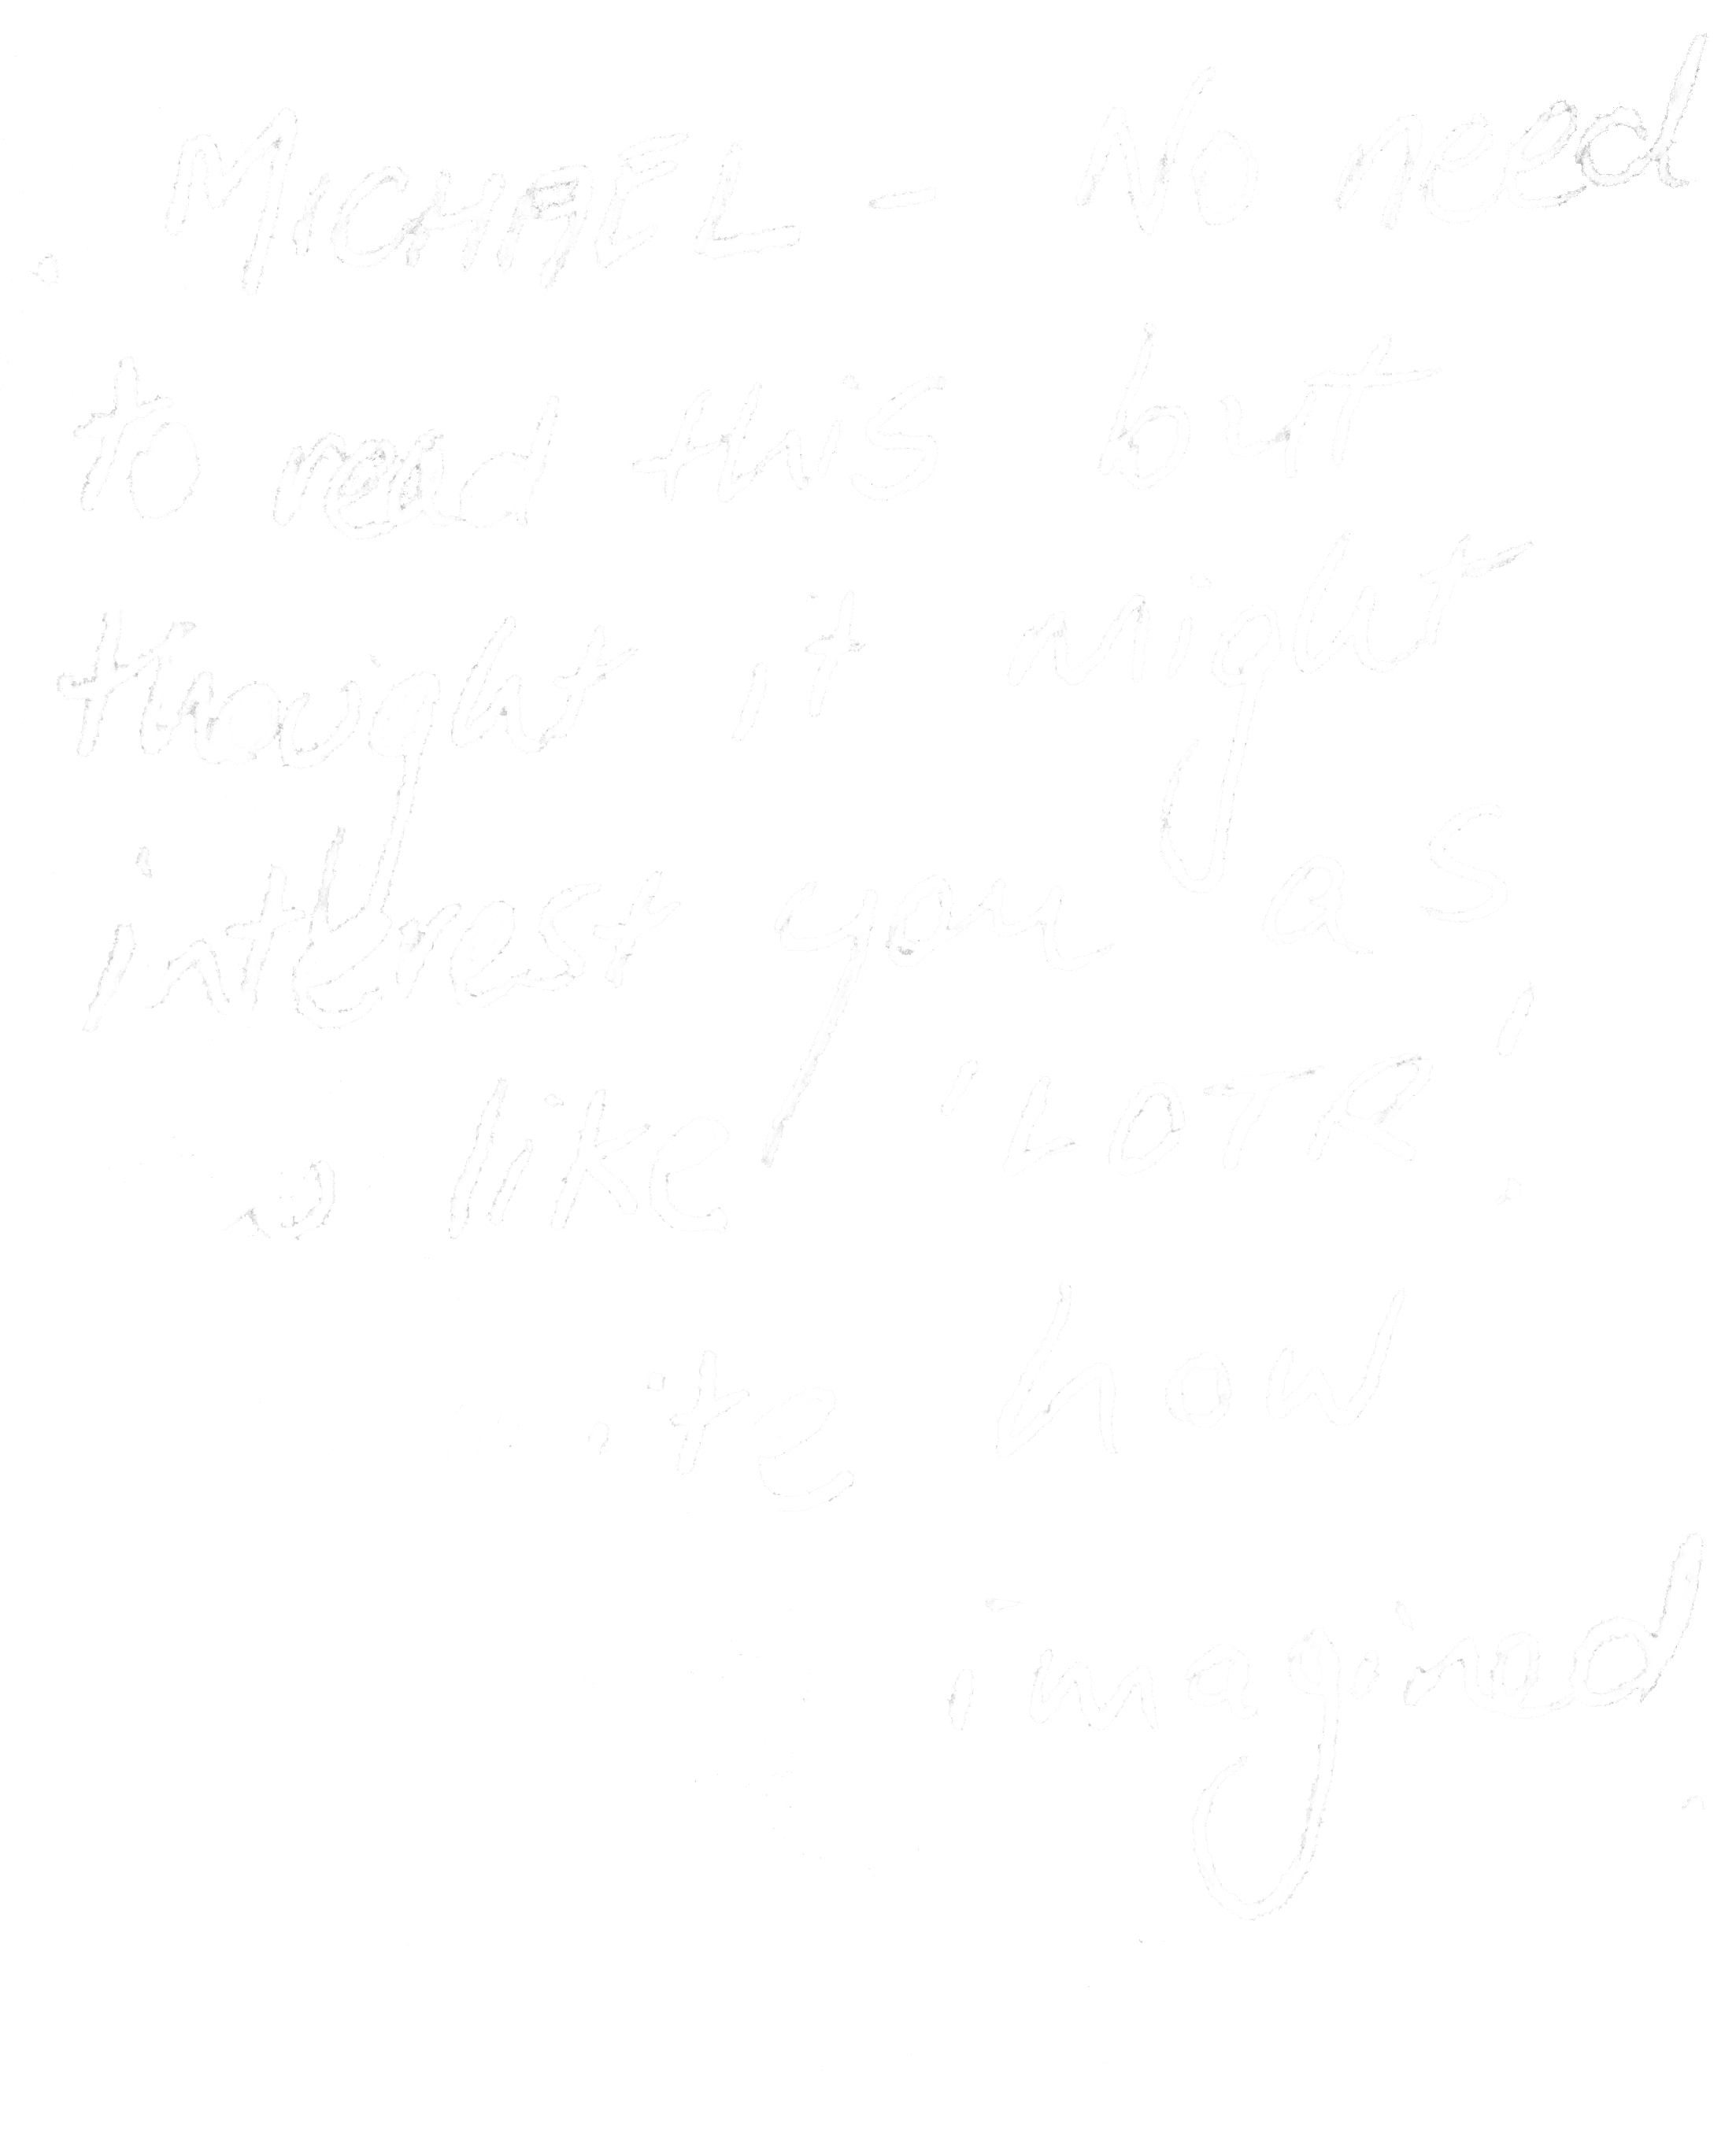 MICHAEL - No need
to read this but
thought it might
interest you as
like 'LOTR'.
how
imagined